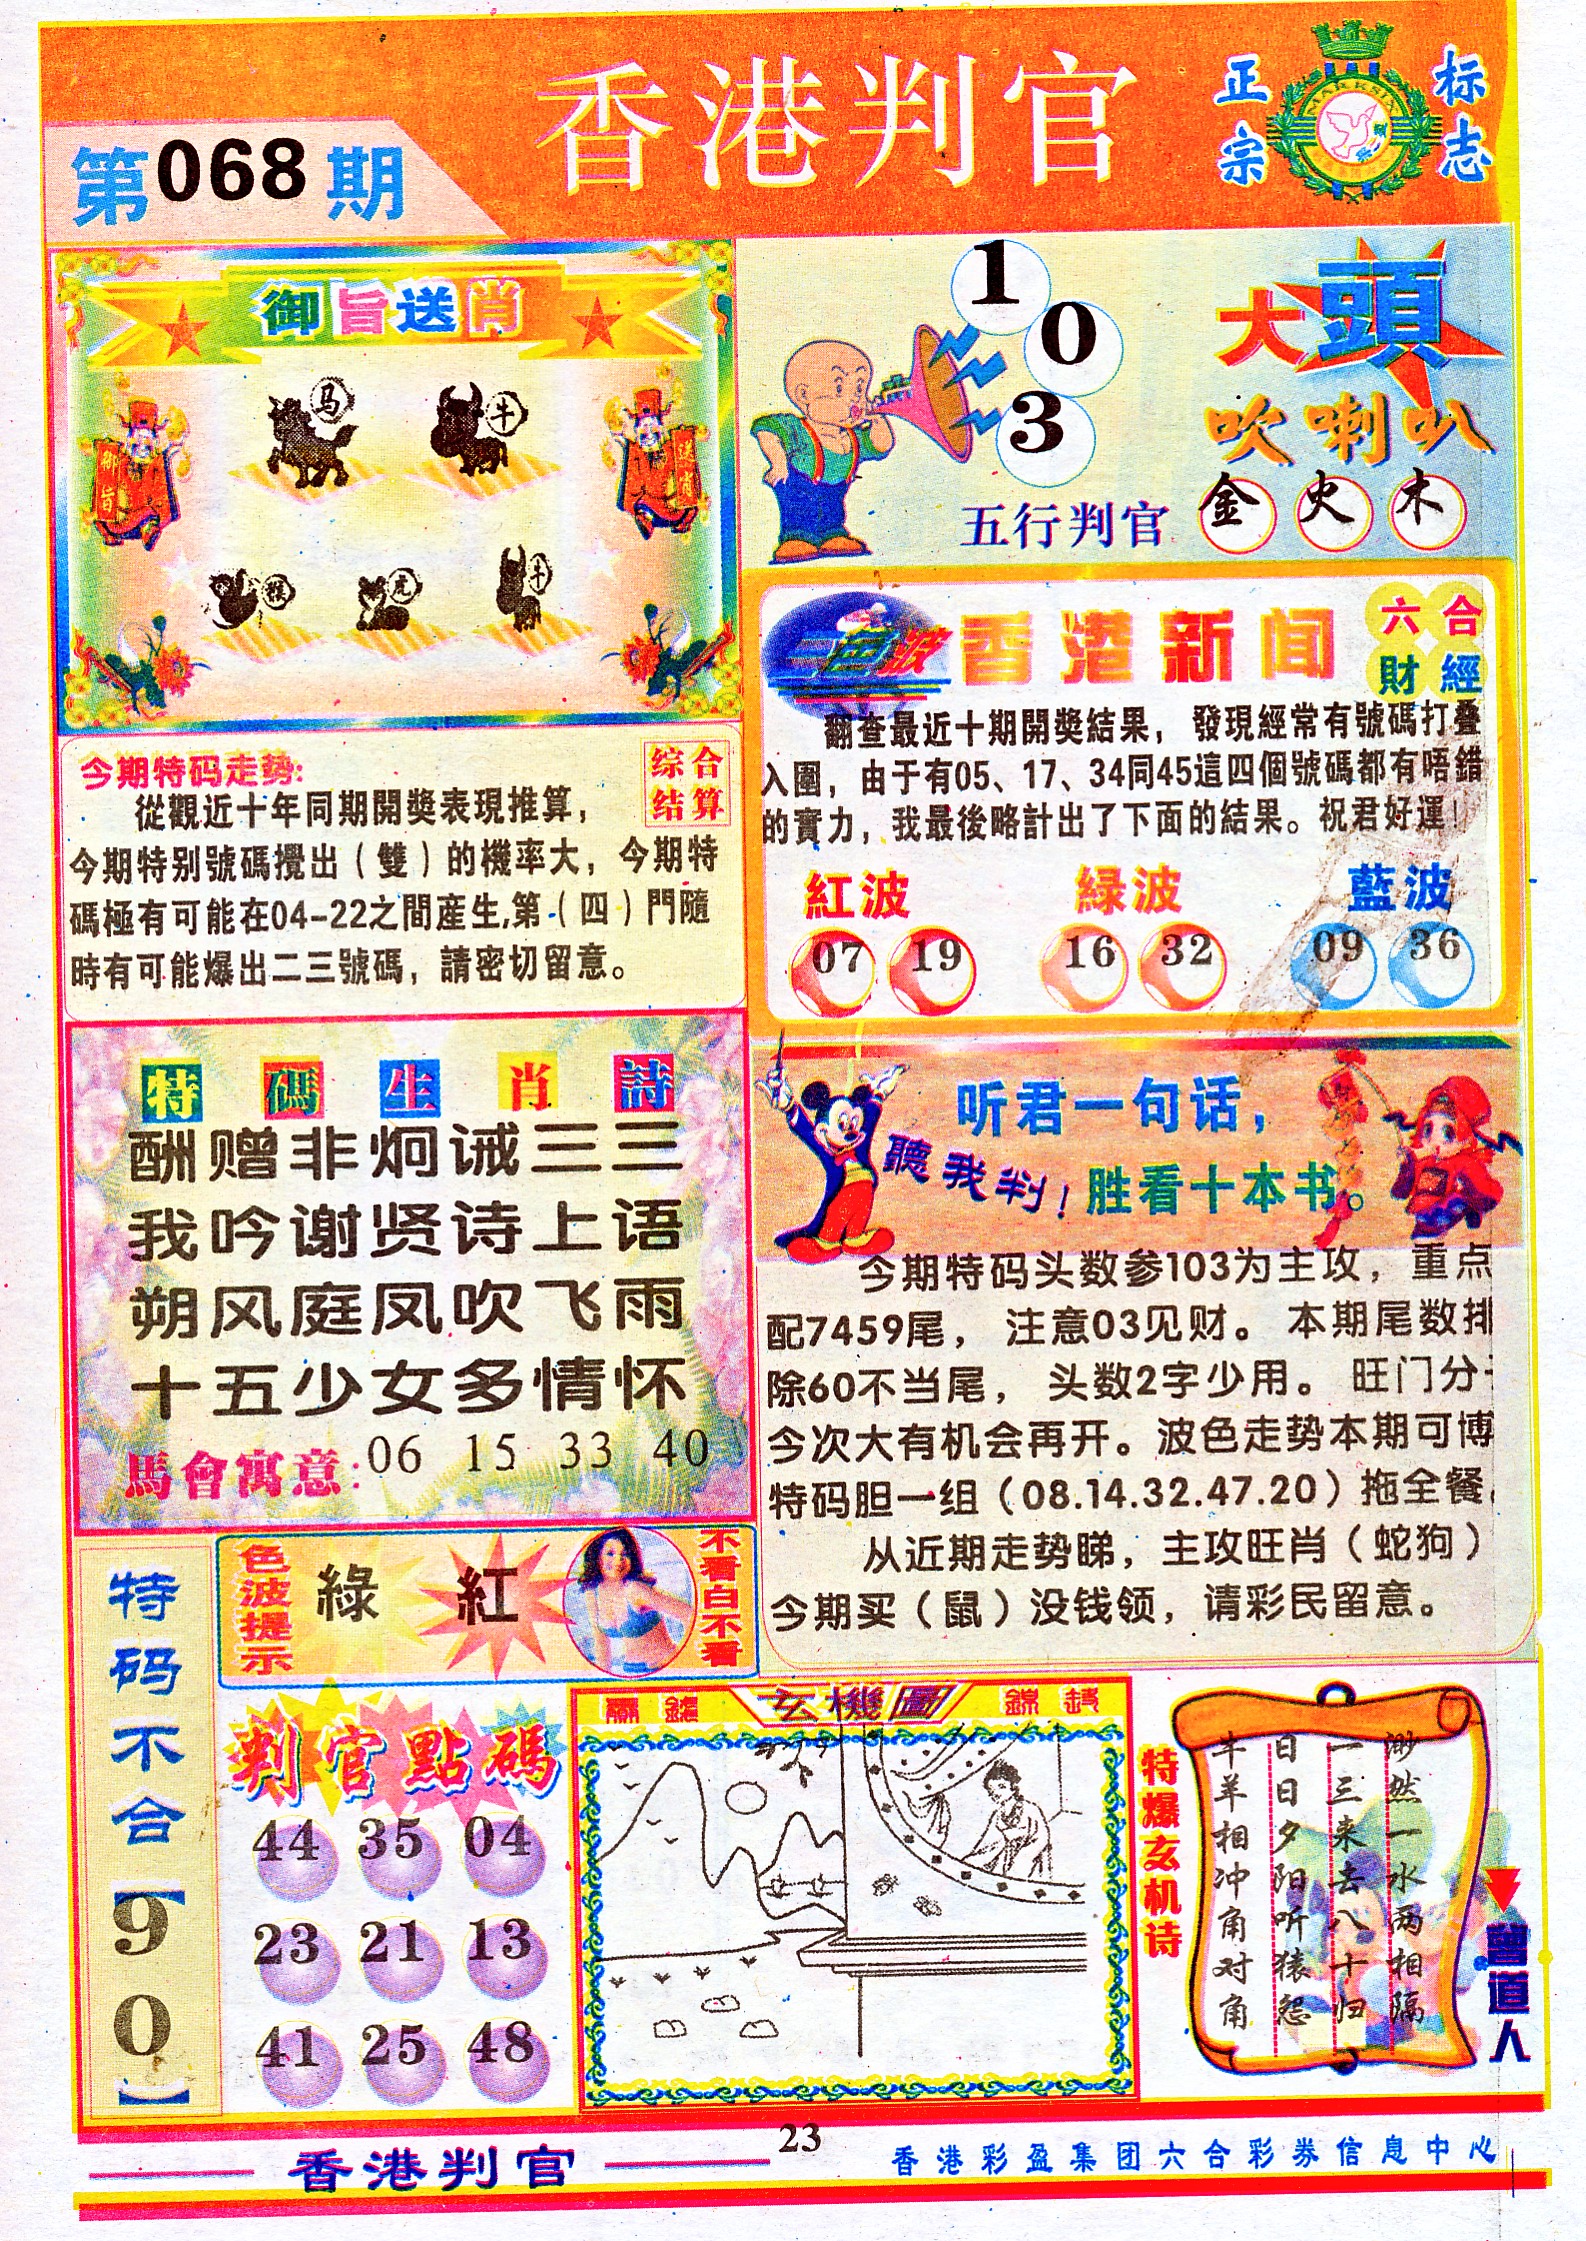 香港判官
正宗
标志
第068期
御旨送肖
马
牛
御旨
猴
虎
牛
1
0
3
大頭
吹喇叭
五行判官 金 火 木
今期特码走势:
综合
结算
從觀近十年同期開獎表現推算，
今期特别號碼攪出（雙）的機率大，今期特
碼極有可能在04-22之間産生,第（四）門隨
時有可能爆出二三號碼，請密切留意。
三色波
香港新闻
六合
財經
翻查最近十期開獎結果，發現經常有號碼打叠
入圍，由于有05、17、34同45這四個號碼都有唔錯
的實力，我最後略計出了下面的結果。祝君好運！
紅波 緑波 藍波
07 19 16 32 09 36
特碼生肖詩
酬赠非炯诫三三
我吟谢贤诗上语
朔风庭凤吹飞雨
十五少女多情怀
馬會寓意: 06 15 33 40
听君一句话，
聽我判！
胜看十本书。
今期特码头数参103为主攻，重点
配7459尾，注意03见财。本期尾数排
除60不当尾，头数2字少用。旺门分
今次大有机会再开。波色走势本期可博
特码胆一组（08.14.32.47.20）拖全餐
从近期走势睇，主攻旺肖（蛇狗）
今期买（鼠）没钱领，请彩民留意。
特码不合【90】
色波提示
綠 紅
不看白不看
判官點碼
44 35 04
23 21 13
41 25 48
玄機圖
特爆玄机诗
渺然一水两相隔
一三来去八十归
日日夕阳听猿怨
牛羊相冲角对角
曾道人
23
香港判官
香港彩盈集团六合彩券信息中心